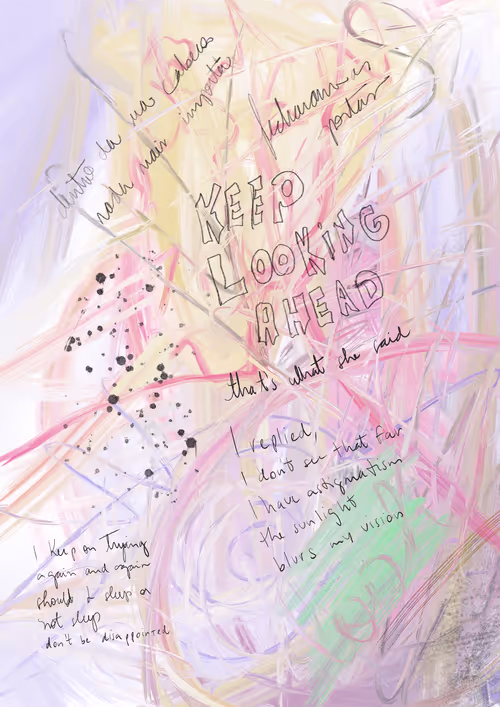 dentro da sua cabeça
nada mais importa
fecharam as
portas
KEEP
LOOKING
AHEAD
that's what she said
I replied,
I dont see that far
I have astigmatism
the sunlight
blurs my vision
I keep on trying
again and again
should I sleep or
not sleep
don't be disappointed